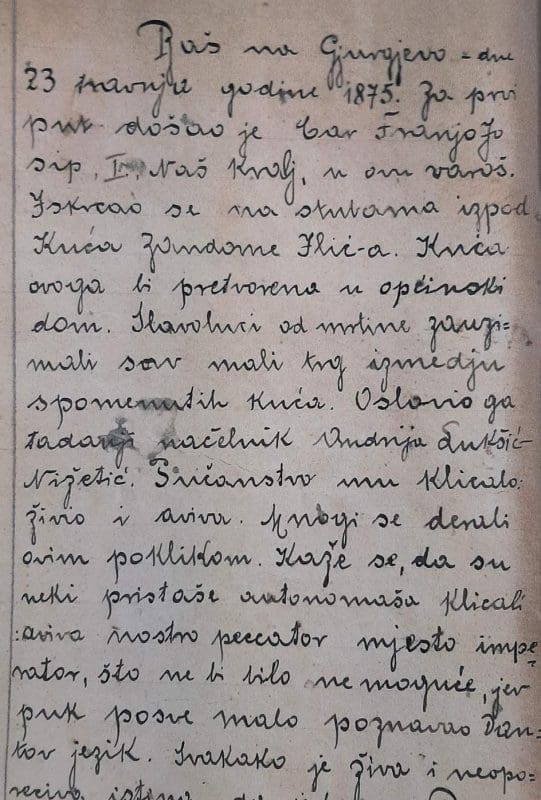 Baš na Gjurgjevo - dne
23 travnja godine 1875. Za prvi
put došao je Car Franjo Jo
sip, I. Naš Kralj, u ovu varoš.
Iskrcao se na stubama izpod
Kuća Zandome Ilić-a. Kuća
ovoga bi pretvorena u općinski
dom. Slavoluci od mrtine zauzi=
mali sav mali trg izmedju
spomenutih kuća. Oslovio ga
tadanji načelnik Andrija Lukšić-
Nižetić. Pučanstvo mu klicalo:
živio i aviva. Mnogi se derali
ovim poklikom. Kaže se, da su
neki pristaše autonomaša klicali
:aviva nostro peccator mjesto impe=
rator, što ne bi bilo ne moguće, jer
puk posve malo poznavao Dan-
tov jezik. Svakako je živa i neopo=
reciva istina da